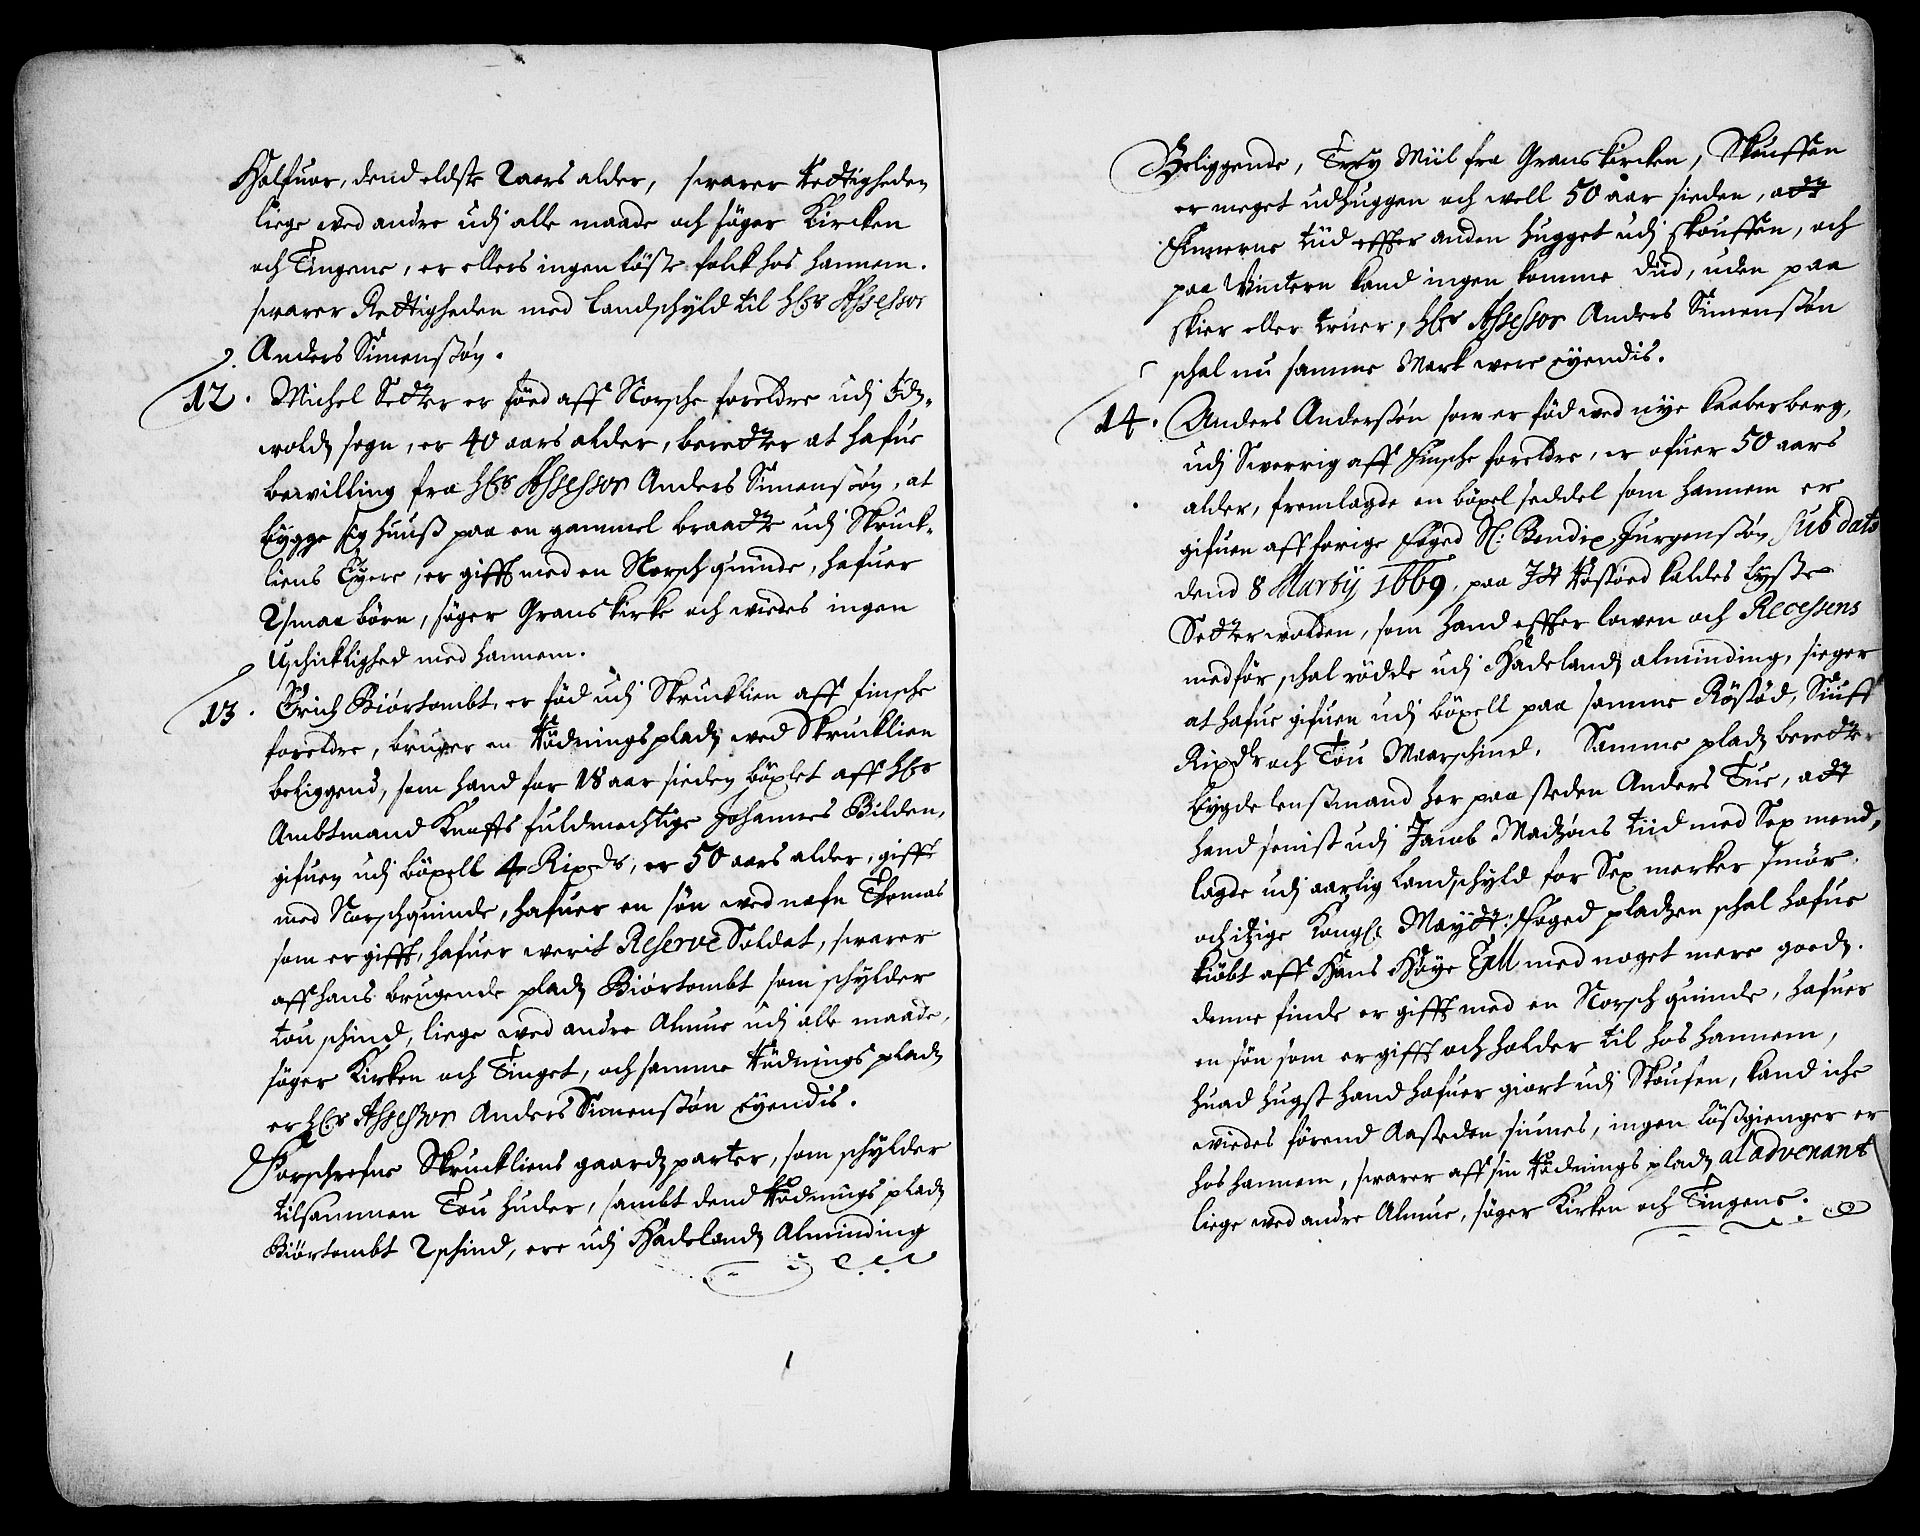 Halfuor, dend eldste 2 aars alder, swarer Rettigheden
liege wed andre udj alle maade och søger Kircken
och Tingene, er ellers ingen løste folck hos hannem.
swarer Rettigheden med Landschyld til Hr Assessor
Anders Simensøn.
12. Michel Setter er føed aff Norsche foreldre udj Eds-
wolds sogn, er 40 aars alder, beretter at hafue
bewilling fra Hr Assessor Anders Simensøn, at
bygge sig huuss paa en gammel braadte udj Skruck-
liens Eyere, er gifft med en Norsch quinde, hafuer
2 smaa børn, søger Grans kirke och wiedes ingen
Uschicklighed med hannem.
13. Erich Biørtombt, er fød udj Skrucklien aff finsche
foreldre, bruger en Rødnings plads wed Skrucklien
beliggend, som hand for 18 aar sieden böxlet aff Hr
Ambtmand Knoffs fuldmechtige Johannes Bilden,
gifuen udj böxell 4 Rixdr, er 50 aars alder, gifft
med Norsch quinde, hafuer en søn wed nafn Thomas
som er gifft, hafuer werit Reserve Soldat, swarer
aff hans brugende plads Biørtombt som schylder
tou schind, liege wed andre Almue udj alle maade,
søger Kirken och Tinget, och samme Rødnings plads
er Hr Assessor Anders Simensøn Eyendis.
Forschrefne Skruckliens gaards parter, som schylder
tilsammen Tou huder, sambt dend Rødnings plads
Biørtombt 2 schind, ere udj Hadelands Alminding
Beliggende, Trey Miil fra Grans kircken, Skouffen
er meget udhuggen och well 50 aar sieden, adt
Finnerne tiid effter anden hugget udj skouffen, och
paa Wintern kand ingen komme did, uden paa
skier eller truer, Hr Assessor Anders Simensøn
schal nu samme Mark were eyendis.
14. Anders Andersøn som er fød wed nye kaaberberg,
udj Swerrig aff Finsche foreldre, er ofuer 50 aars
alder, fremlagde en böxel seddel som hannem er
gifuen aff forige Foged Sl: Bendix Jurgensøn sub dato
dend 8 Martij 1669, paa It Røstøed kaldes Lysse
Setter wolden, som hand effter lowen och Recessens
medfør schal rødde udj Hadelands alminding, sieger
at hafue gifuen udj böxell paa samme Røstød, Siuff
Rixdr och Tou Maarschind. Samme plads beretter
bygde lensmand her paa steden Anders Tue, adt
hand senist udj Jacob Madtzøns tiid med Sex mend,
lagde udj aarlig Landschyld for Sex merker smør
och itzige Kongl: Mayts: Foged pladsen schal hafue
kiøbt aff Hans Høye Ex med noget mere goeds.
denne finde er gifft med en Norsch quinde, hafuer
en søn som er gifft och holder til hos hannem,
huad hugst hand hafuer giort udj Skoufen, kand iche
wiedes førend Aasteden siunes, ingen løssgienger er
hos hannem, swarer aff sin Rødnings plads al advenant
liege wed andre Almue, søger Kirken och Tingene.